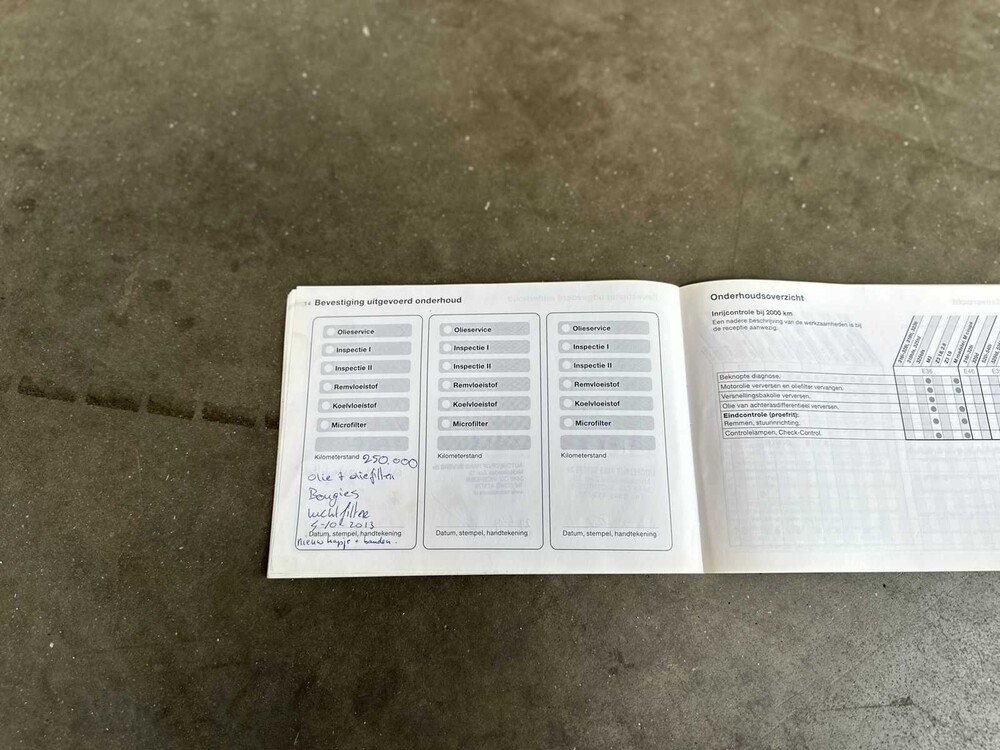 14 Bevestiging uitgevoerd onderhoud
Olieservice
Inspectie I
Inspectie II
Remvloeistof
Koelvloeistof
Microfilter
Kilometerstand 250.000
olie + oliefilter
Bougies
luchtfilter
2013
Datum, stempel, handtekening
Nieuw kapje + banden.
Olieservice
Inspectie I
Inspectie II
Remvloeistof
Koelvloeistof
Microfilter
Kilometerstand
Datum, stempel, handtekening
Olieservice
Inspectie I
Inspectie II
Remvloeistof
Koelvloeistof
Microfilter
Kilometerstand
Datum, stempel, handtekening
Onderhoudsoverzicht
Inrijcontrole bij 2000 km
Een nadere beschrijving van de werkzaamheden is bij
de receptie aanwezig.
M3
E36
Beknopte diagnose.
Motorolie verversen en oliefilter vervangen.
Versnellingsbakolie verversen.
Olie van achterasdifferentieel verversen.
Eindcontrole (proefrit):
Remmen, stuurinrichting.
Controlelampen, Check-Control.